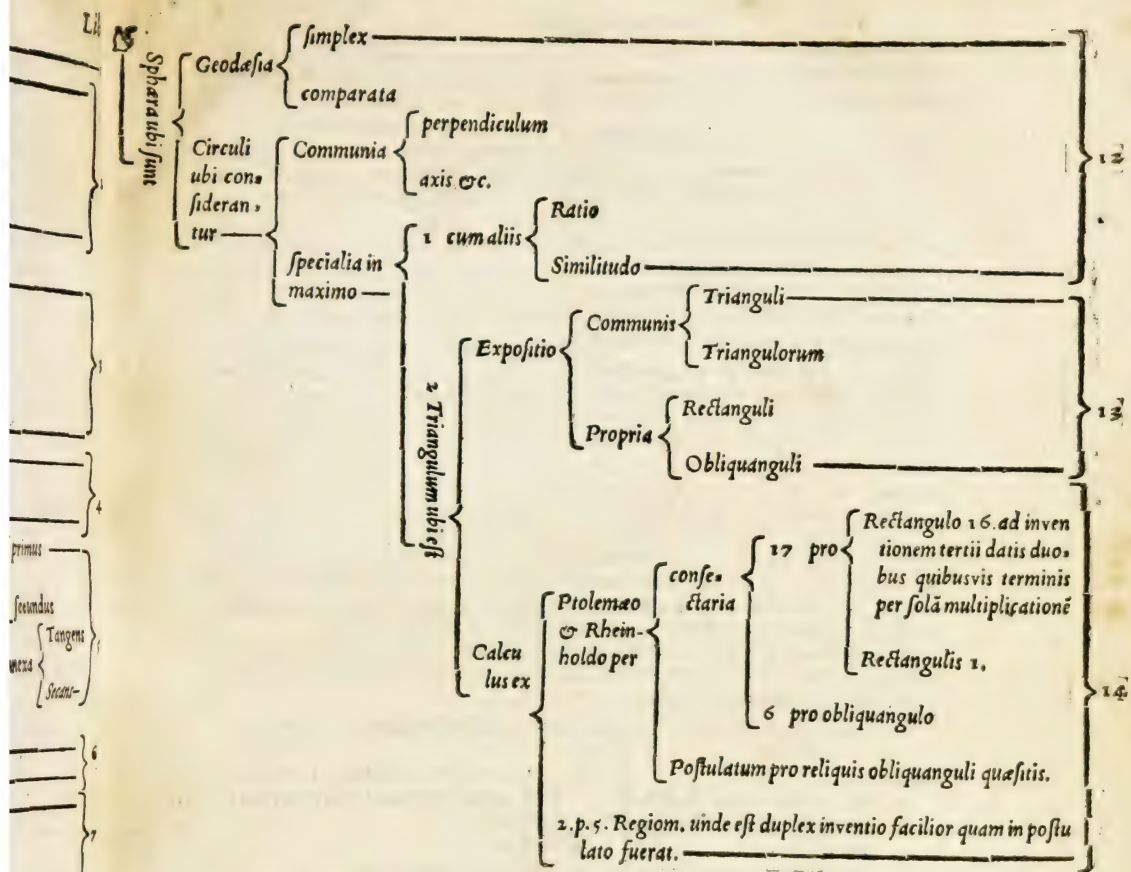 Lib
Sphæra ubi ſunt
Geodæſia
ſimplex
comparata
12
Circuli
ubi con-
ſideran-
tur
Communia
perpendiculum
axis &c.
ſpecialia in
maximo
1 cum aliis
Ratio
Similitudo
2 Triangulum ubi eſt
Expoſitio
Communis
Trianguli
Triangulorum
13
Propria
Rectanguli
Obliquanguli
Calcu
lus ex
Ptolemæo
& Rhein-
holdo per
conſe-
ctaria
17 pro
Rectangulo 16. ad inven
tionem tertii datis duo-
bus quibusvis terminis
per ſolā multiplicationē
Rectangulis 1.
6 pro obliquangulo
Poſtulatum pro reliquis obliquanguli quæſitis.
2. p. 5. Regiom. unde eſt duplex inventio facilior quam in poſtu
lato fuerat.
14
3
4
primus
ſecundus
Tangens
nexa
Secans
6
7